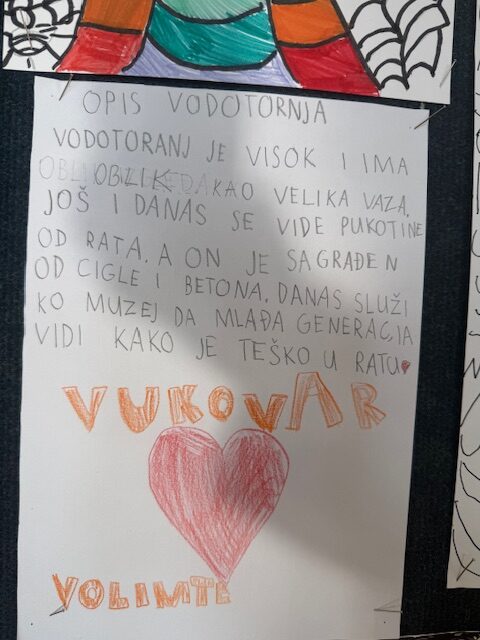 OPIS VODOTORNJA
VODOTORANJ JE VISOK I IMA
OBLIK KAO VELIKA VAZA.
JOŠ I DANAS SE VIDE PUKOTINE
OD RATA. A ON JE SAGRAĐEN
OD CIGLE I BETONA. DANAS SLUŽI
KO MUZEJ DA MLAĐA GENERACIJA
VIDI KAKO JE TEŠKO U RATU
VUKOVAR
VOLIMTE